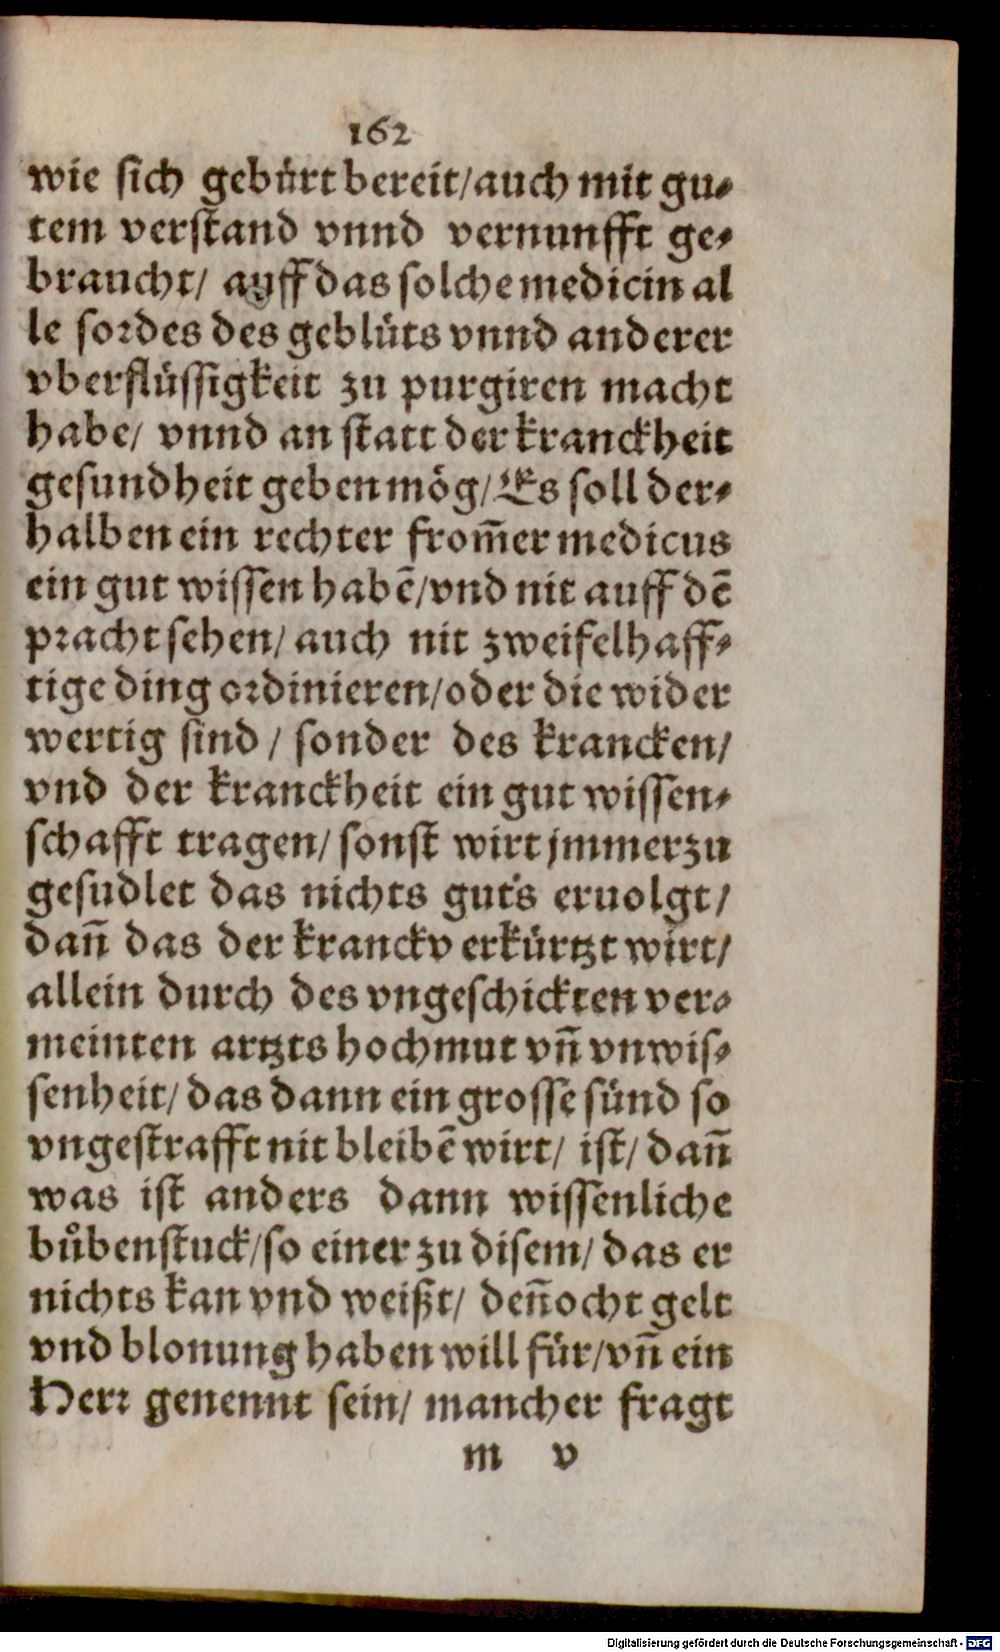 162
wie sich gebürt bereit/auch mit gu⸗
tem verstand vnnd vernunfft ge⸗
braucht/ auff das solche medicin al
le sordes des geblüts vnnd anderer
vberflüssigkeit zu purgiren macht
habe/ vnnd an statt der kranckheit
gesundheit geben mög/Es soll der⸗
halben ein rechter from̃er medicus
ein gut wissen habē/vnd nit auff dē
pracht sehen/ auch nit zweifelhaff⸗
tige ding ordinieren/oder die wider
wertig sind / sonder des krancken/
vnd der kranckheit ein gut wissen⸗
schafft tragen/ sonst wirt jmmerzu
gesudlet das nichts guts eruolgt/
dañ das der kranck verkürtzt wirt/
allein durch des vngeschickten ver⸗
meinten artzts hochmut vñ vnwis⸗
senheit/ das dann ein grosse sünd so
vngestrafft nit bleibē wirt/ ist/ dañ
was ist anders dann wissenliche
bůbenstuck/so einer zu disem/ das er
nichts kan vnd weißt/ deñocht gelt
vnd blonung haben will für/vñ ein
Herr genennt sein/ mancher fragt
m v
Digitalisierung gefördert durch die Deutsche Forschungsgemeinschaft - DFG